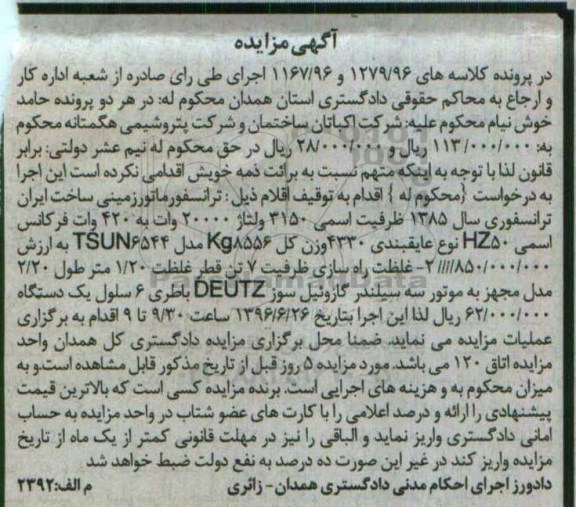 آگهی مزایده
در پرونده کلاسه های ۱۲۷۹/۹۶ و ۱۱۶۷/۹۶ اجرای طی رای صادره از شعبه اداره کار
و ارجاع به محاکم حقوقی دادگستری استان همدان محکوم له: در هر دو پرونده حامد
خوش نیام محکوم علیه: شرکت اکباتان ساختمان و شرکت پتروشیمی هگمتانه محکوم
به: ۱۱۳/۰۰۰/۰۰۰ ریال ۲۸/۰۰۰/۰۰۰ ریال در حق محکوم له نیم عشر دولتی: برابر
قانون لذا با توجه به اینکه متهم نسبت به برائت ذمه خویش اقدامی نکرده است این اجرا
به درخواست {محکوم له } اقدام به توقیف اقلام ذیل : ترانسفورماتور زمینی ساخت ایران
ترانسفوری سال ۱۳۸۵ ظرفیت اسمی ۳۱۵۰ ولتاژ ۲۰۰۰۰ وات به ۴۲۰ وات فرکانس
اسمی HZ۵۰ نوع عایقبندی ۴۳۳۰ وزن کل Kg۸۵۵۶ مدل TSUN۶۵۴۴ به ارزش
۸۵۰/۰۰۰/۰۰۰//// ۲- غلطت راه سازی ظرفیت ۷ تن قطر غلطت ۱/۲۰ متر طول ۲/۲۰
مدل مجهز به موتور سه سیلندر گازوئیل سوز DEUTZ باطری ۶ سلول یک دستگاه
۶۲/۰۰۰/۰۰۰ ریال لذا این اجرا بتاریخ ۱۳۹۶/۶/۲۶ ساعت ۹/۳۰ تا ۹ اقدام به برگزاری
عملیات مزایده می نماید. ضمنا محل برگزاری مزایده دادگستری کل همدان واحد
مزایده اتاق ۱۲۰ می باشد. مورد مزایده ۵ روز قبل از تاریخ مذکور قابل مشاهده است.و به
میزان محکوم به و هزینه های اجرایی است. برنده مزایده کسی است که بالاترین قیمت
پیشنهادی را ارائه و درصد اعلامی را با کارت های عضو شتاب در واحد مزایده به حساب
امانی دادگستری واریز نماید و الباقی را نیز در مهلت قانونی کمتر از یک ماه از تاریخ
مزایده واریز کند در غیر این صورت ده درصد به نفع دولت ضبط خواهد شد
دادورز اجرای احکام مدنی دادگستری همدان - زائری
م الف:۲۳۹۲